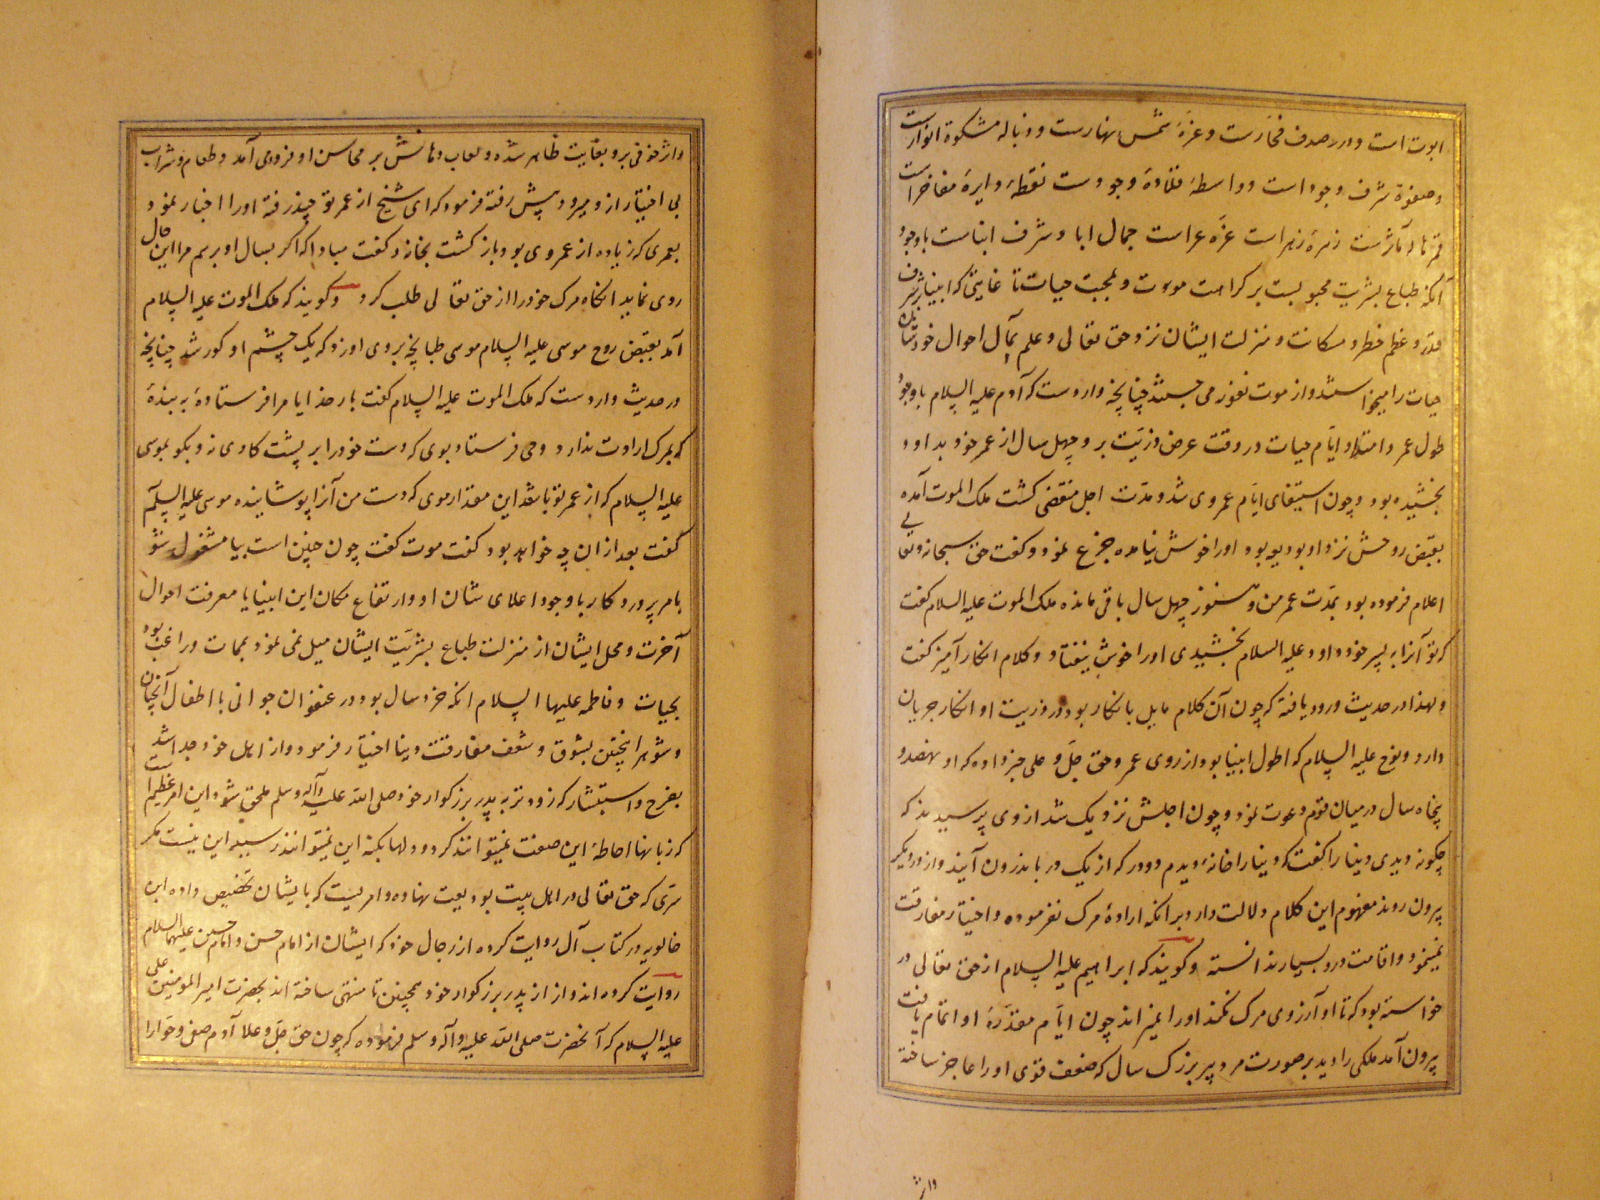 ابوت است و در صدف فخارست و عزهٔ شمس نهارست و دبالهٔ مشکوة انوار است
و صفوة شرف وجود است و واسطهٔ قلادهٔ وجودست نقطهٔ دایرهٔ مفاخر است
زهرهٔ زهراست عزه عراست جمال ابا و شرف ابناست با وجود
آنکه طباع بشریت مجبولست بر کراهت موت و محبت حیات تا غایتی که انبیا با شرف
قدر و عظم خطر و مکانت و منزلت ایشان نزد حق تعالی و علم بمآل احوال خودشان
حیات را میخواستند و از موت نفور می جستند چنانچه واردست که آدم علیه السلام با وجود
طول عمر و امتداد ایام حیات در وقت عرض ذریت بر و چهل سال از عمر خود بداود
بخشیده بود و چون استیفای ایام عمر وی شد و مدت اجل منقضی کشت ملک الموت آمده
بقبض روحش نزد او بود اورا خوش نیامده جزع نمود و کفت حق سبحانه و تعالی
اعلام فرموده بود بمدت عمر من و هنوز چهل سال باقی مانده ملک الموت علیه السلام کفت
که تو آنرا به پسر خود داود علیه السلام بخشیدی اورا خوش نیفتاد و کلام انکار آمیز کفت
و لهذا در حدیث ورود یافته که چون آن کلام مایل بانکار بود در ذریت او انکار جریان
دارد و نوح علیه السلام که اطول انبیا بود از روی عمر و حق جل و علی خبر داده که او نهصد و
پنجاه سال در میان قوم دعوت نمود و چون اجلش نزدیک شد از وی پرسیدند که
چکونه دیدی دنیا را کفت که دنیا را خانهٔ دیدم دو در که از یک در باندرون آیند و از در دیکر
بیرون روند مفهوم این کلام دلالت دارد بر آنکه ارادهٔ مرک نفرموده و اختیار مفارقت
نمینمود و اقامت درو بسیار ندانسته و کویند که ابراهیم علیه السلام از حق تعالی در
خواسته بود که تا او آرزوی مرک نکند اورا نمیراند چون ایام مقدرهٔ او اتمام یافت
بیرون آمد ملکی را دید بر صورت مرد پیر بزرک سال که ضعف قوی اورا عاجز ساخته
واژ
واژ خوفی برو بغایت ظاهر شده و لعاب دهانش بر محاسن او فرودمی آمد و طعام و شراب
بی اختیار ازو میرود پیش رفته فرمود که ای شیخ از عمر تو چند رفته اورا اخبار نمود
بعمری که زیاده از عمر وی بود باز کشت بخانه و کفت مبادا که اکر بسال او برسم مرا این حال
روی نماید آنکاه مرک خود را از حق تعالی طلب کرد و کویند که ملک الموت علیه السلام
آمد بقبض روح موسی علیه السلام موسی طبانچه بر وی او زد که یک چشم او کور شد چنانچه
در حدیث واردست که ملک الموت علیه السلام کفت بار خدایا مرا فرستادهٔ به بندهٔ
که مرک ارادت ندارد وحی فرستاد بوی که دست خود را بر پشت کاوی نه و بکو بموسی
علیه السلام که از عمر تو باشد این مقدار موی که دست من آنرا پوشاینده موسی علیه السلام
کفت بعد ازان چه خواهد بود کفت موت کفت چون چنین است بیا مشغول شو
بامر پروردکار با وجود اعلای شان او وارتفاع مکان این انبیا با معرفت احوال
آخرت و محل ایشان از منزلت طباع بشریت ایشان میل نمی نمود بممات و راغب بود
بحیات و فاطمه علیها السلام آنکه خرد سال بود در عنفوان جوانی با اطفال آنچنان
و شوهر اینچنین بشوق و شعف مفارقت دنیا اختیار فرمود و از اهل خود جدا شد
بفرح و استبشار که زودتر به پدر بزرکوار خود صلی الله علیه وآله وسلم ملحق شود این امر عظیم است
که زبانها احاطهٔ این صفت نمیتوانند کرد و دلها بکنه این نمیتوانند رسید این نیست مکر
سری که حق تعالی در اهل بیت بودیعت نهاده و امریست که بایشان تخصیص داده ابن
خالویه در کتاب آل روایت کرده از رجال خود که ایشان از امام حسن و امام حسین علیهما السلام
روایت کرده اند و از از پدر بزرکوار خود همچنین تا منتهی ساخته اند بحضرت امیر المومنین علی
علیه السلام که آنحضرت صلی الله علیه وآله وسلم فرموده که چون حق جل و علا آدم صفی و حوا را